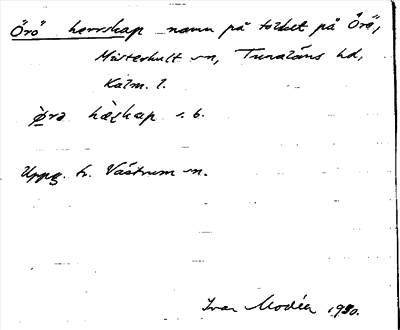 Örö herrskap namn på torpet på Örö,
Misterhult sn, Tunaläns hd,
Kalm. l.
ø̀rə hæ̀skap s. b.
Uppg. fr. Västrum sn.
Ivar Modéer 1930.